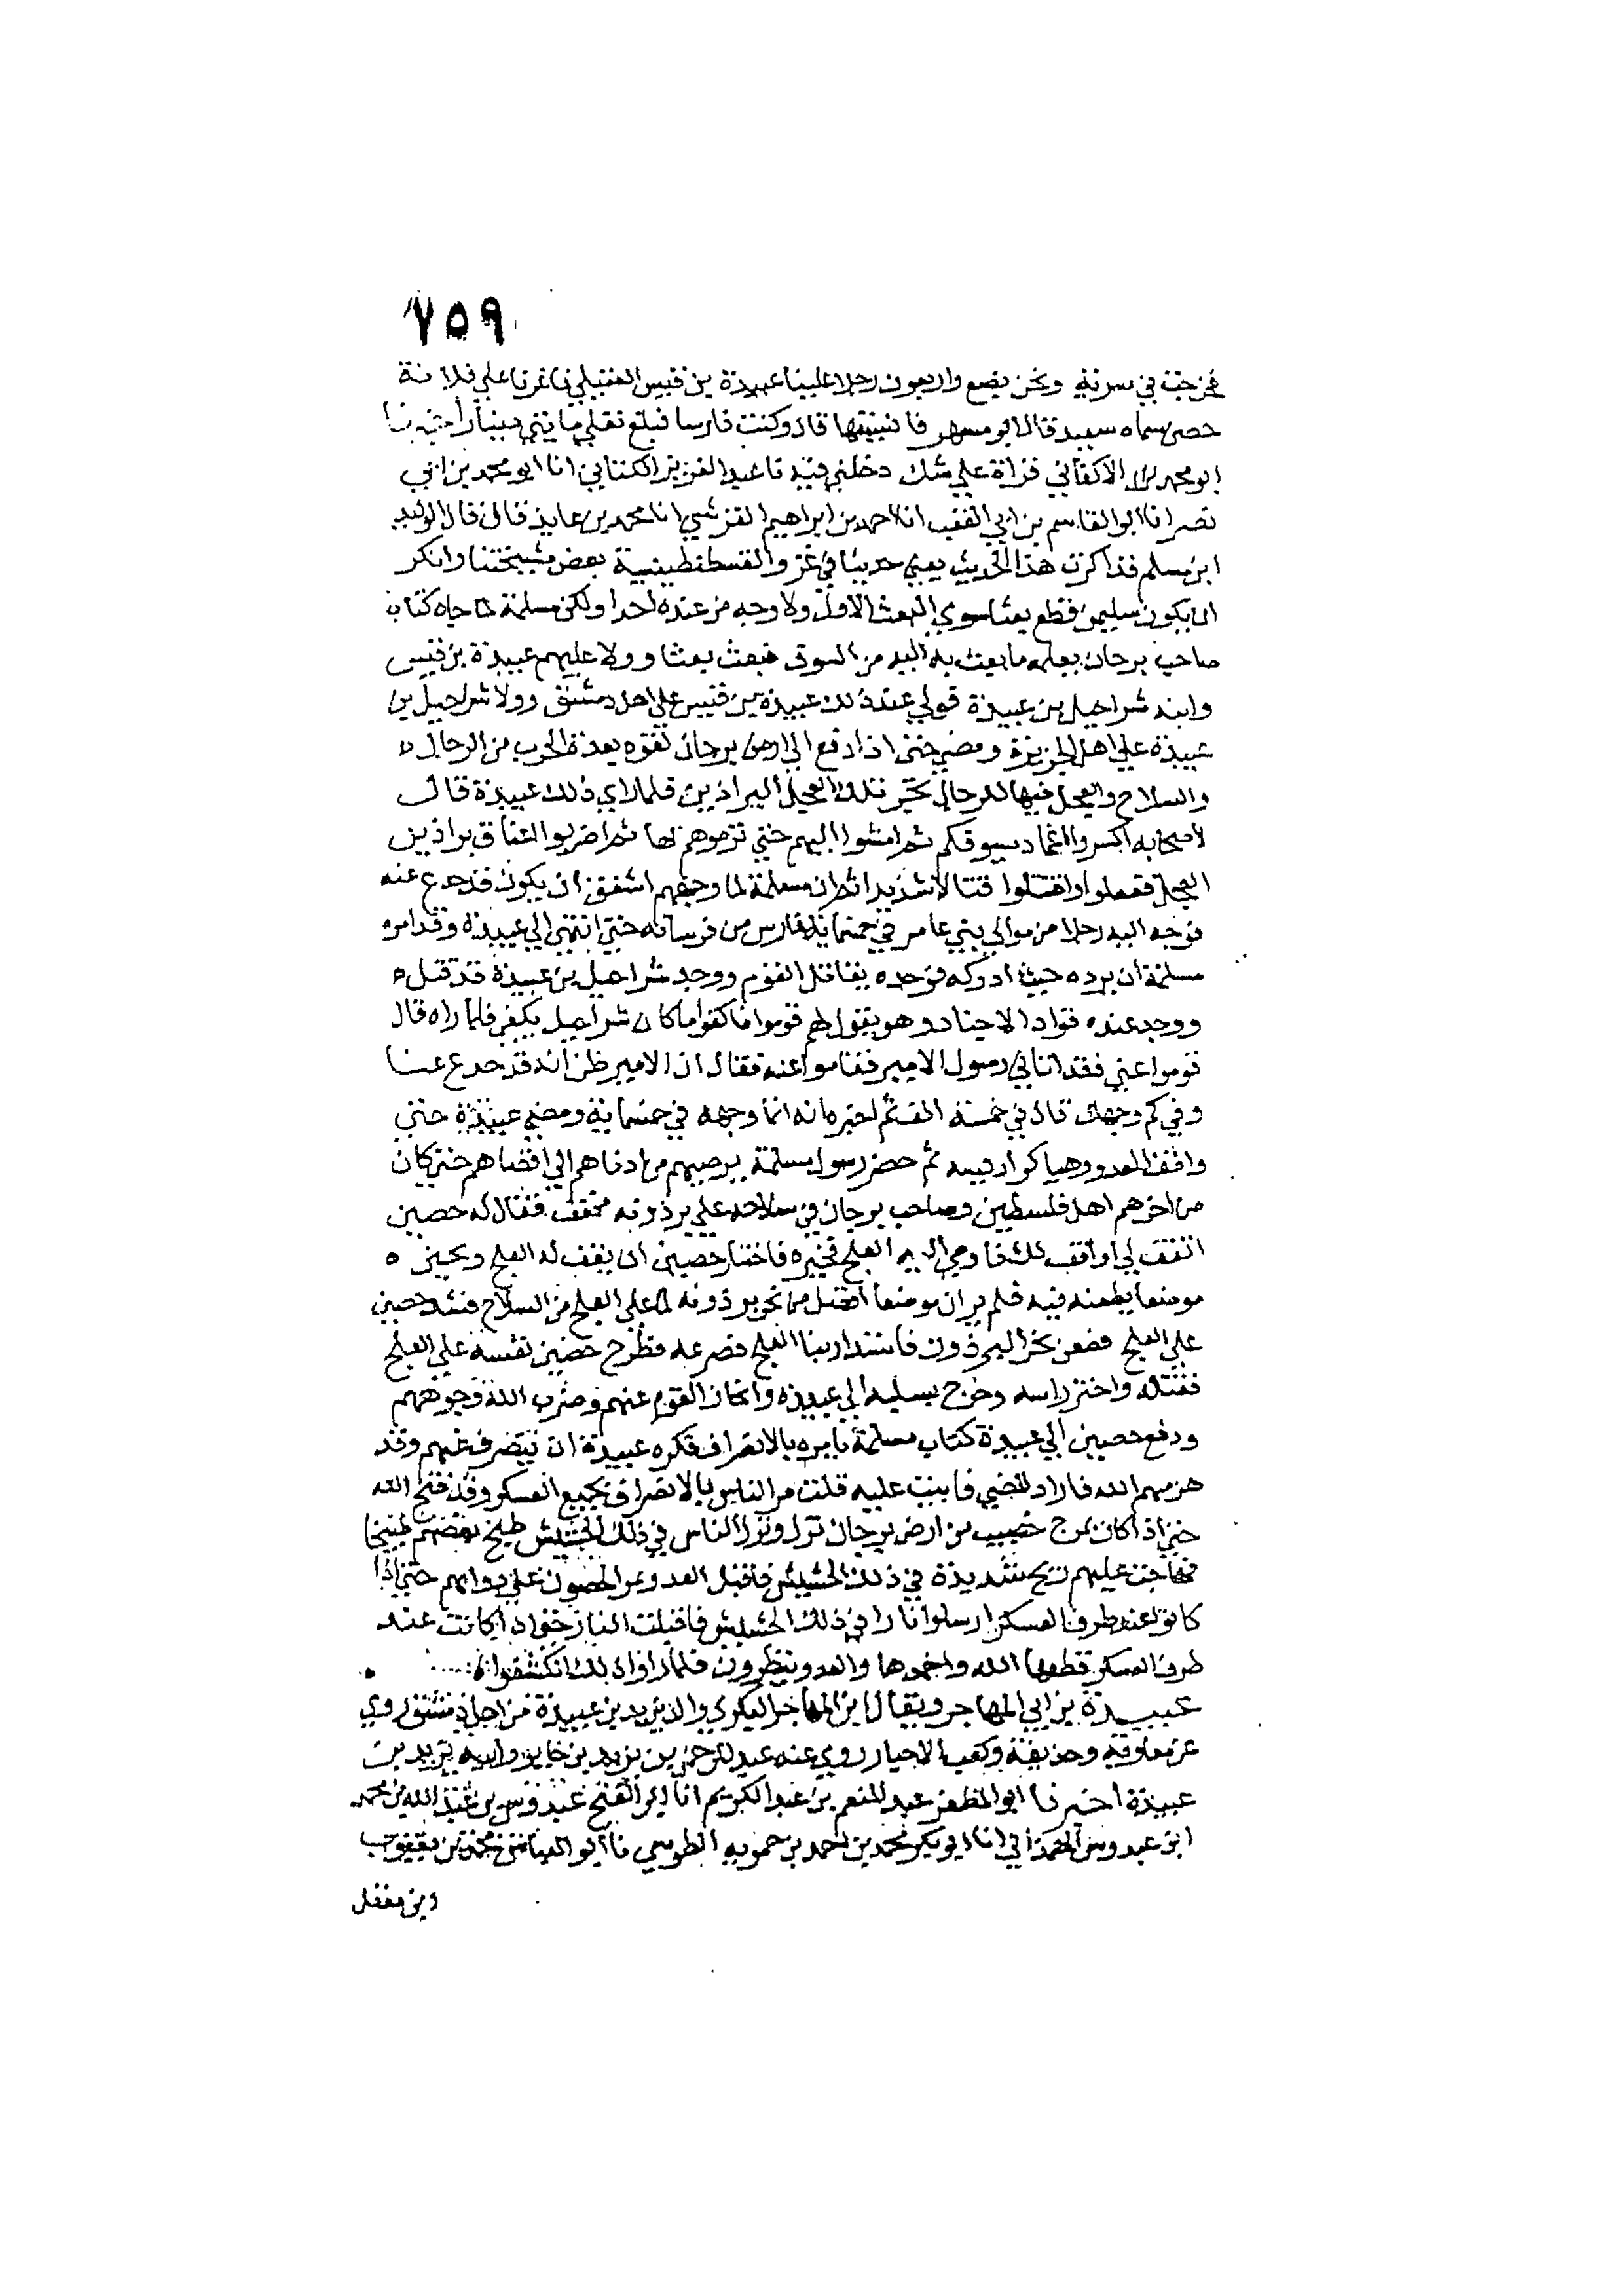 ٧٥٩
فخرجت في سرية ونحن بضع واربعون رجلا علينا عبيدة بن قيس العقيلي فاغرنا على ثلاثة
حصون سماه سعيد قال ابو مسهر فانسيتها قال وكنت فارسا فبلغ نفلي مايتي دينار اخبرنا
ابو محمد بن الاكفاني قراة على شك دخلني فيه نا عبد العزيز الكتاني انا ابو محمد بن ابي
نصر انا ابو القاسم بن ابي العقب انا احمد بن ابراهيم القرشي انا محمد بن عايذ قال قال الوليد
ابن مسلم فذاكرت هذا الحديث يعني حديثا في غزو القسطنطينية بعض مشيختنا وانكر
ان يكون سليمن قطع بعثا سوي البعث الاول ولا وجه من عنده احدا ولكن مسلمة لما جاه كتاب
صاحب برجان بعلمه ما بعث به اليه من السوق فبعث بعثا وولا عليهم عبيدة بن قيس
وابنه شراحيل بن عبيدة فولي عند ذلك عبيدة بن قيس على اهل دمشق وولا شراحيل بن
عبيدة علي اهل الجزيرة ومضي حتى اذا دفع الى ارض برجان لقوه بعدة الحرب من الرجال
والسلاح والعجل فيها الرجال تجر تلك العجل البراذين فلما راي ذلك عبيدة قال
لاصحابه اكسروا اغماد سيوفكم ثم امشوا اليهم حتي ترموهم بها ثم اضربوا اعناق براذين
العجل ففعلوا واقتتلوا قتالا شديدا ثم ان مسلمة لما وجههم اشفق ان يكون قد خدع عنه
فوجه اليه رجلا من موالي بني عامر في خمسماية فارس من فرسانه حتي انتهي الي عبيدة وقد امره
مسلمة ان يرده حيث ادركه فوجده يقاتل القوم ووجد شراحيل بن عبيدة قد قتل
ووجد عنده قواد الاجناد وهو يقول لهم قوموا فاكفوا ما كان شراحيل يكفي فلما راه قال
قوموا عني فقد اتاني رسول الامير فقاموا عنه فقال ان الامير ظن انه قد خدع عنا
وفي كم وجهك قال في خمسة الف ثم اخبره انه انما وجهه في خمسماية ومضي عبيدة حتي
واقف العدو وهيا كراديسه ثم حضر رسول مسلمة يرصيهم من ادناهم الي اقصاهم حتي كان
من اخرهم اهل فلسطين وصاحب برجان في سلاحه علي برذونه مجفف فقال له حصين
اتقف لي او اقف لك فاومي اليه العلج فخيره فاختار حصين ان يقف له العلج وتحين
موضعا يطعنه فيه فلم ير ان موضعا افضل من نحر برذونه لما علي العلج من السلاح فشد حصين
علي العلج فطعن نحر البرذون فاستدار بنا العلج فصرعه فطرح حصين نفسه علي العلج
فقتله واحتز راسه وخرج بسلبه الي عبيدة وانحاز القوم عنهم وضرب الله وجوههم
ودفع حصين الي عبيدة كتاب مسلمة يامره بالانصراف فكره عبيدة ان ينصرف عنهم وقد
هزمهم الله فاراد المضي فابيت عليه قلت مر الناس بالانصراف بجميع العسكر وقد فتح الله
حتي اذا كان بمرج خصيب من ارض برجان نزل ونزل الناس في ذلك الحشيش طبخ بعضهم طبيخا
فهاجت عليهم ريح شديدة في ذلك الحشيش فاقبل العدو من الحصون علي دوابهم حتي اذا
كانوا عند طرف العسكر ارسلوا نارا في ذلك الحشيش فاقبلت النار حتي اذا كانت عند
طرف العسكر قطعها الله واخمدها والعدو ينظرون فلما راوا ذلك انكشفوا
عبيدة بن ابي المهاجر ويقال ابن المهاجر العكري والد يزيد بن عبيدة من اهل دمشق روي
عن معاوية وحذيفة وكعب الاحبار روي عنه عبد الرحمن بن يزيد بن جابر وابنه يزيد بن
عبيدة اخبرنا ابو المظفر عبد المنعم بن عبد الكريم انا ابو الفتح عبدوس بن عبد الله بن محمد
ابن عبدوس الهمذاني انا ابو بكر محمد بن احمد بن حمويه الطوسي نا ابو العباس محمد بن يعقوب
ابن معقل